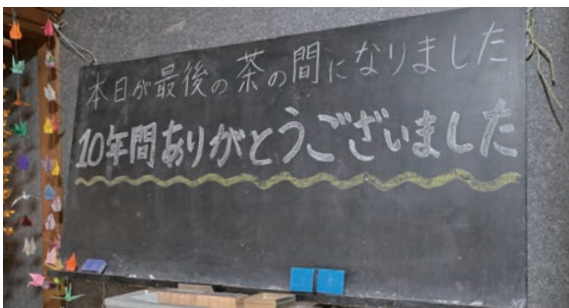 本日が最後の茶の間になりました
10年間ありがとうございました